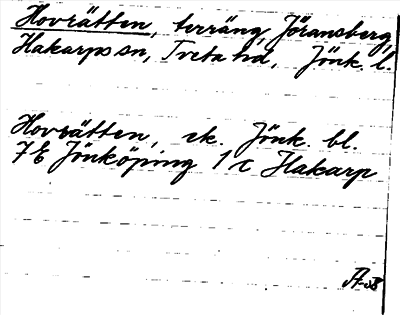 Hovrätten, terräng, Jöransberg,
Hakarps sn, Tveta hd, Jönk. l.
Hovrätten, ek. Jönk. bl.
7E Jönköping 1c Hakarp